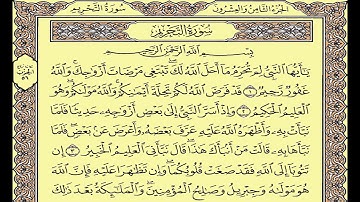 الجزء الثامن والعشرون سورة التحريم
سورة التحريم
بسم الله الرحمن الرحيم
يَٰٓأَيُّهَا ٱلنَّبِيُّ لِمَ تُحَرِّمُ مَآ أَحَلَّ ٱللَّهُ لَكَ تَبْتَغِي مَرْضَاتَ أَزْوَٰجِكَ وَٱللَّهُ
غَفُورٌ رَّحِيمٌ ١ قَدْ فَرَضَ ٱللَّهُ لَكُمْ تَحِلَّةَ أَيْمَٰنِكُمْ وَٱللَّهُ مَوْلَىٰكُمْ وَهُوَ
ٱلْعَلِيمُ ٱلْحَكِيمُ ٢ وَإِذْ أَسَرَّ ٱلنَّبِيُّ إِلَىٰ بَعْضِ أَزْوَٰجِهِۦ حَدِيثًا فَلَمَّا
نَبَّأَتْ بِهِۦ وَأَظْهَرَهُ ٱللَّهُ عَلَيْهِ عَرَّفَ بَعْضَهُۥ وَأَعْرَضَ عَنۢ بَعْضٍ فَلَمَّا
نَبَّأَهَا بِهِۦ قَالَتْ مَنْ أَنۢبَأَكَ هَٰذَا قَالَ نَبَّأَنِيَ ٱلْعَلِيمُ ٱلْخَبِيرُ ٣ إِن
تَتُوبَآ إِلَى ٱللَّهِ فَقَدْ صَغَتْ قُلُوبُكُمَا وَإِن تَظَٰهَرَا عَلَيْهِ فَإِنَّ ٱللَّهَ
هُوَ مَوْلَىٰهُ وَجِبْرِيلُ وَصَٰلِحُ ٱلْمُؤْمِنِينَ وَٱلْمَلَٰٓئِكَةُ بَعْدَ ذَٰلِكَ